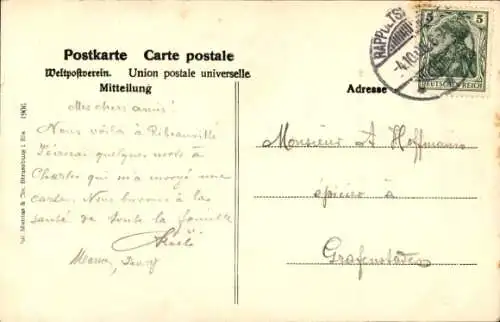 Postkarte Carte postale
Weltpostverein. Union postale universelle
Mitteilung
Adresse
RAPPOLTS
4.10.
5
DEUTSCHES REICH
Mes chers amis!
Nous voilà à Ribeauvillé
J'écrirai quelques mots à
Charles qui m'a envoyé une
carte. Nous buvons à la
santé de toute la famille
Monsieur A Hoffmann
épicier à
Grafenstaden
1906